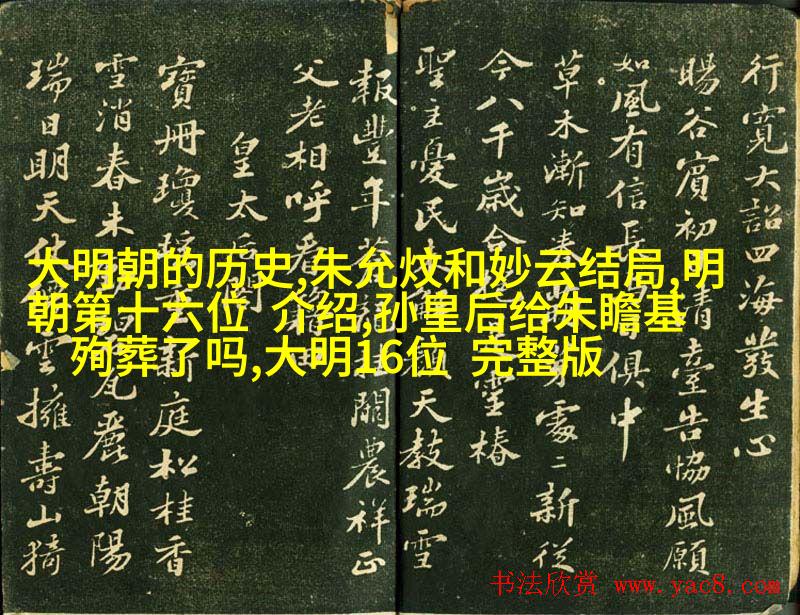 行寬大詔四海發生心
暘谷賓初晴臺告協風願
如風有信長俱中
草木漸知春芽處〻新從
今八千歲合是靈椿
聖主憂民天教瑞雪
報豐年春社開農祥正
父老相呼看
皇太后
寶冊瓊新庭松桂香
雪消春未瓦麗朝陽
瑞日明天仗雲擁壽山猗
大明朝的历史,朱允炆和妙云结局,明
朝第十六位 介绍,孙皇后给朱瞻基
殉葬了吗,大明16位 完整版
书法欣赏 www.yac8.com